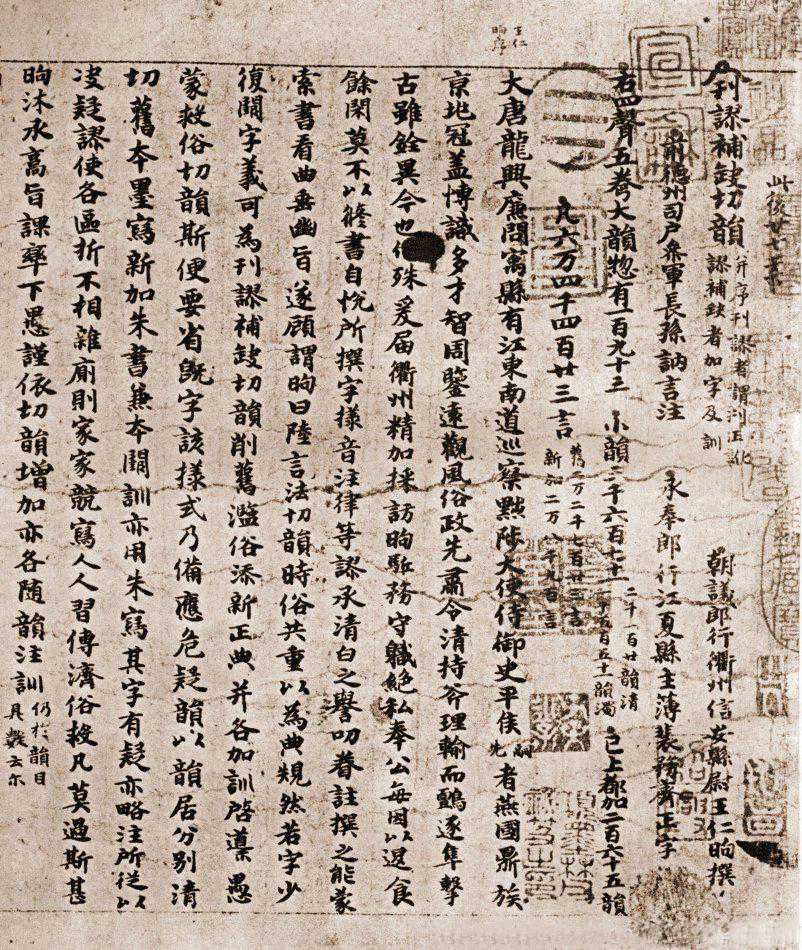 刊謬補缺切韻 并序刊謬者謂刊正訛謬補缺者加字及訓 朝議郎行衢州信安縣尉王仁昫撰
前德州司戶叅軍長孫訥言注 承奉郎行江夏縣主簿裴務齊正字
右四聲五卷大韻惣有一百九十三 小韻三千六百七十一 二千一百廿韻清 一千五百五十一韻濁 已上都加二百六十五韻
凡六万四千四百廿三言 舊二万二千七百廿三言 新加二万八千九百言
王仁昫序
大唐龍興廉問寓縣有江東南道巡察黜陟大使侍御史平侯嗣先者燕國鼎族
京兆冠盖博識多才智周鑒遠觀風俗政先肅令清持斧理輪而鸇逐隼擊
古雖銓異今也何殊爰届衢州精加採訪昫馳務守職絕私奉公每因以退食
餘閑莫不以修書自悅所撰字樣音注律等謬承清白之譽叨眷註撰之能蒙
索書看曲垂幽旨遂顧謂昫曰陸言法切韻時俗共重以為典規然若字少
復闕字義可為刊謬補缺切韻削舊濫俗添新正典并各加訓啓導愚
蒙救俗切韻斯便要省既字該樣式乃備應危疑韻以韻居分別清
切舊本墨寫新加朱書兼本闕訓亦用朱寫其字有疑亦略注所從以
決疑謬使各區析不相雜廁則家家競寫人人習傳濟俗救凡莫過斯甚
昫沐承高旨課率下愚謹依切韻增加亦各随韻注訓仍於韻目具數云尓